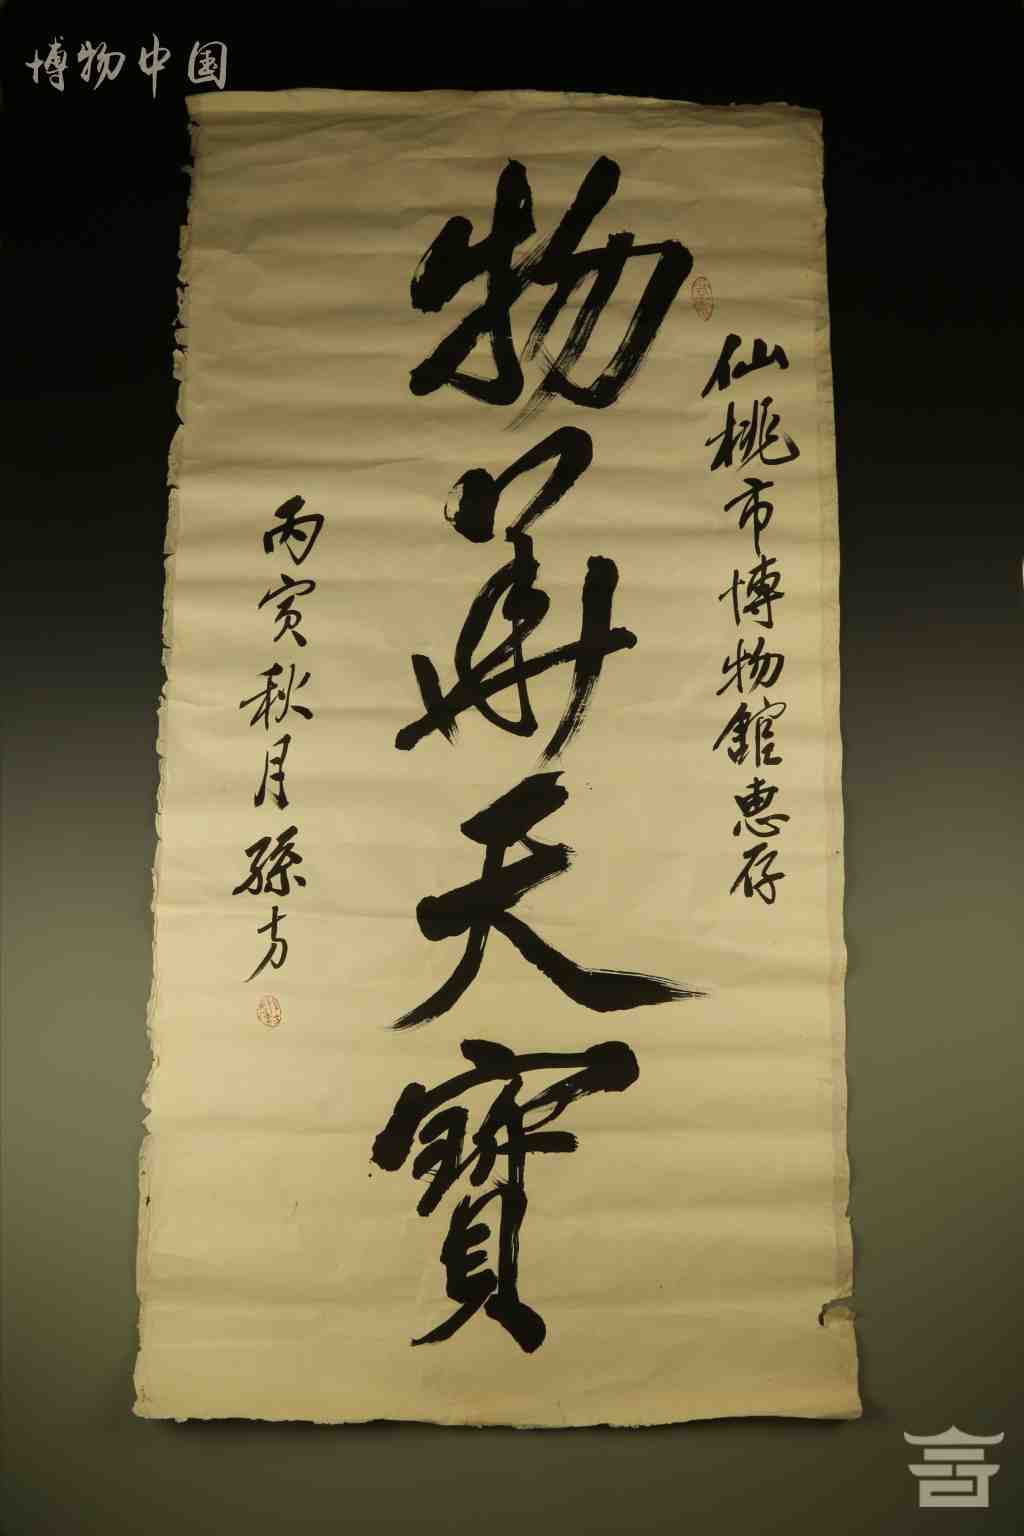 博物中国
仙桃市博物館惠存
物華天寶
丙寅秋月孫方